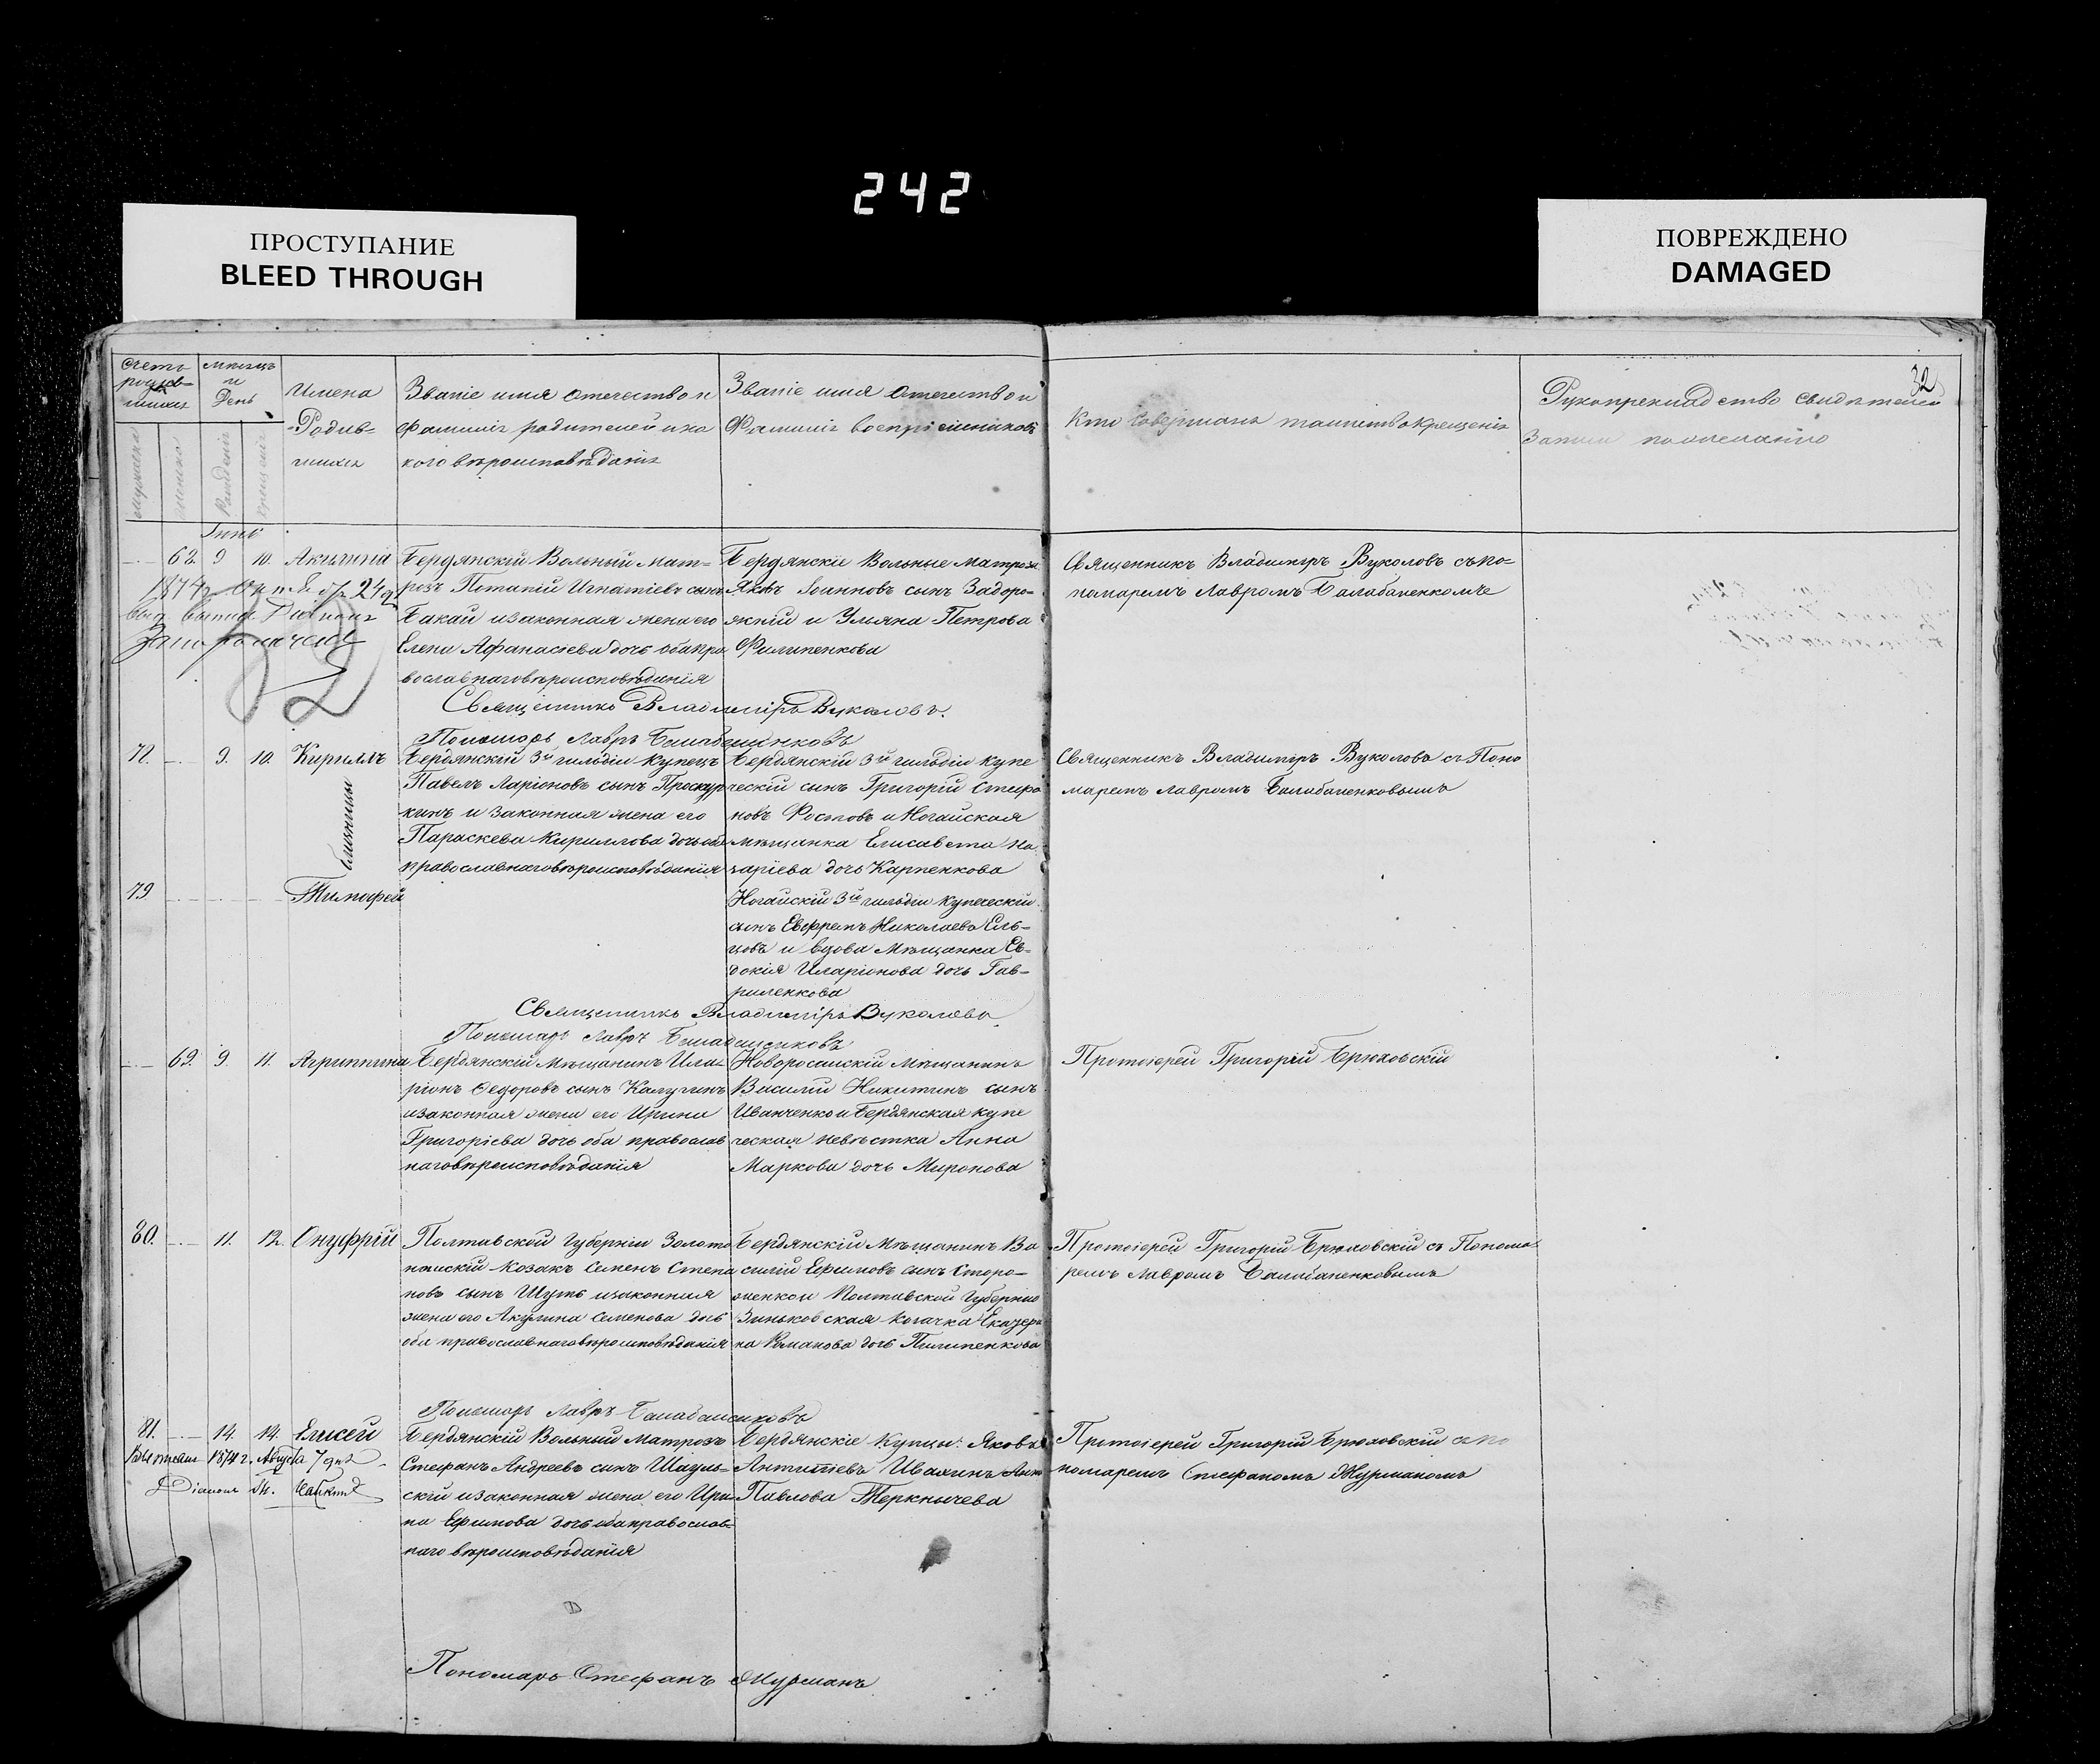 242
ПРОСТУПАНИЕ
BLEED THROUGH
ПОВРЕЖДЕНО
DAMAGED
32
Счетъ
мѣсяцъ
и
День
Имена
Родив-
шихся
Званіе имя отечество и
Фамилія родителей и ка
кого вѣроисповѣданія
Званіе имя отечество и
Фамилія воспріемниковъ
Кто совершалъ таинство крещенія
Рукоприкладство свидѣтелей
записи по желанію
62 9 10. Акилина
Бердянскій Вольный мат-
розъ Потапій Игнатіевъ сынъ
Бакай и законная жена его
Елена Афанасіева дочь оба пра
вославнаго вѣроисповѣданія
Бердянскіе Вольные матрозы
Яковъ Іоанновъ сынъ Задоро-
жній и Ульяна Петрова
Филипенкова
Священникъ Владиміръ Вуколовъ съ по-
номаремъ Лавромъ Балабаненкомъ
Священникъ Владиміръ Вуколовъ.
Пономарь Лавръ
9. 10. Кириллъ
близнецы
Бердянскій 3й гильдіи купецъ
Павелъ Ларіоновъ сынъ Проскур
кинъ и законная жена его
Параскева Кириллова дочь оба
православнаго вѣроисповѣданія
Бердянскій 3й гильдіи купе
ческій сынъ Григорій Стефа
новъ Фостовъ и Ногайская
мѣщанка Елисавета На
заріева дочь Карпенкова
Священникъ Владиміръ Вуколовъ съ Поно
маремъ Лавромъ Балабаненковымъ
79 Тимофей
Ногайскій 3й гильдіи купеческій
сынъ Ефремъ Николаевъ Ель-
цовъ и вдова Мѣщанка Ев-
докія Иларіонова дочь Гав-
риленкова
Священникъ Владиміръ Вуколовъ
Пономарь Лавръ
9. 11. Агриппина
Бердянскій Мѣщанинъ Ила-
ріонъ Федоровъ сынъ Калугинъ
и законная жена его Ирина
Григоріева дочь оба православ
наго вѣроисповѣданія
Новоросійскій Мѣщанинъ
Василій Никитинъ сынъ
Иванченко и Бердянская купе
ческая невѣстка Анна
Маркова дочь Миронова
Протоіерей Григорій Брюховскій
80. 11. 12. Онуфрій
Полтавской Губерніи Золото
ношскій Козакъ Семенъ Степа
новъ сынъ Шуть и законная
жена его Акулина Семенова дочь
оба православнаго вѣроисповѣданія
Бердянскій Мѣщанинъ Ва
силій Ефимовъ сынъ Сторо-
женко и Полтавской Губерніи
Зиньковская козачка Екатери
на Романова дочь Пилипенкова
Протоіерей Григорій Брюховскій съ Понома
ремъ Лавромъ Балабаненковымъ
Пономарь Лавръ
81. 14. 14. Елисей
1874 г. Августа 7 дня
Бердянскій Вольный Матрозъ
Стефанъ Андреевъ сынъ Шауль-
скій и законная жена его Ири-
на Ефимова дочь оба православ-
наго вѣроисповѣданія
Бердянскіе Купцы: Яковъ
Антипіевъ Ивахинъ Анна
Павлова Теркнычева
Протоіерей Григорій Брюховскій съ по
номаремъ Стефаномъ Журманомъ
Пономарь Стефанъ Журманъ